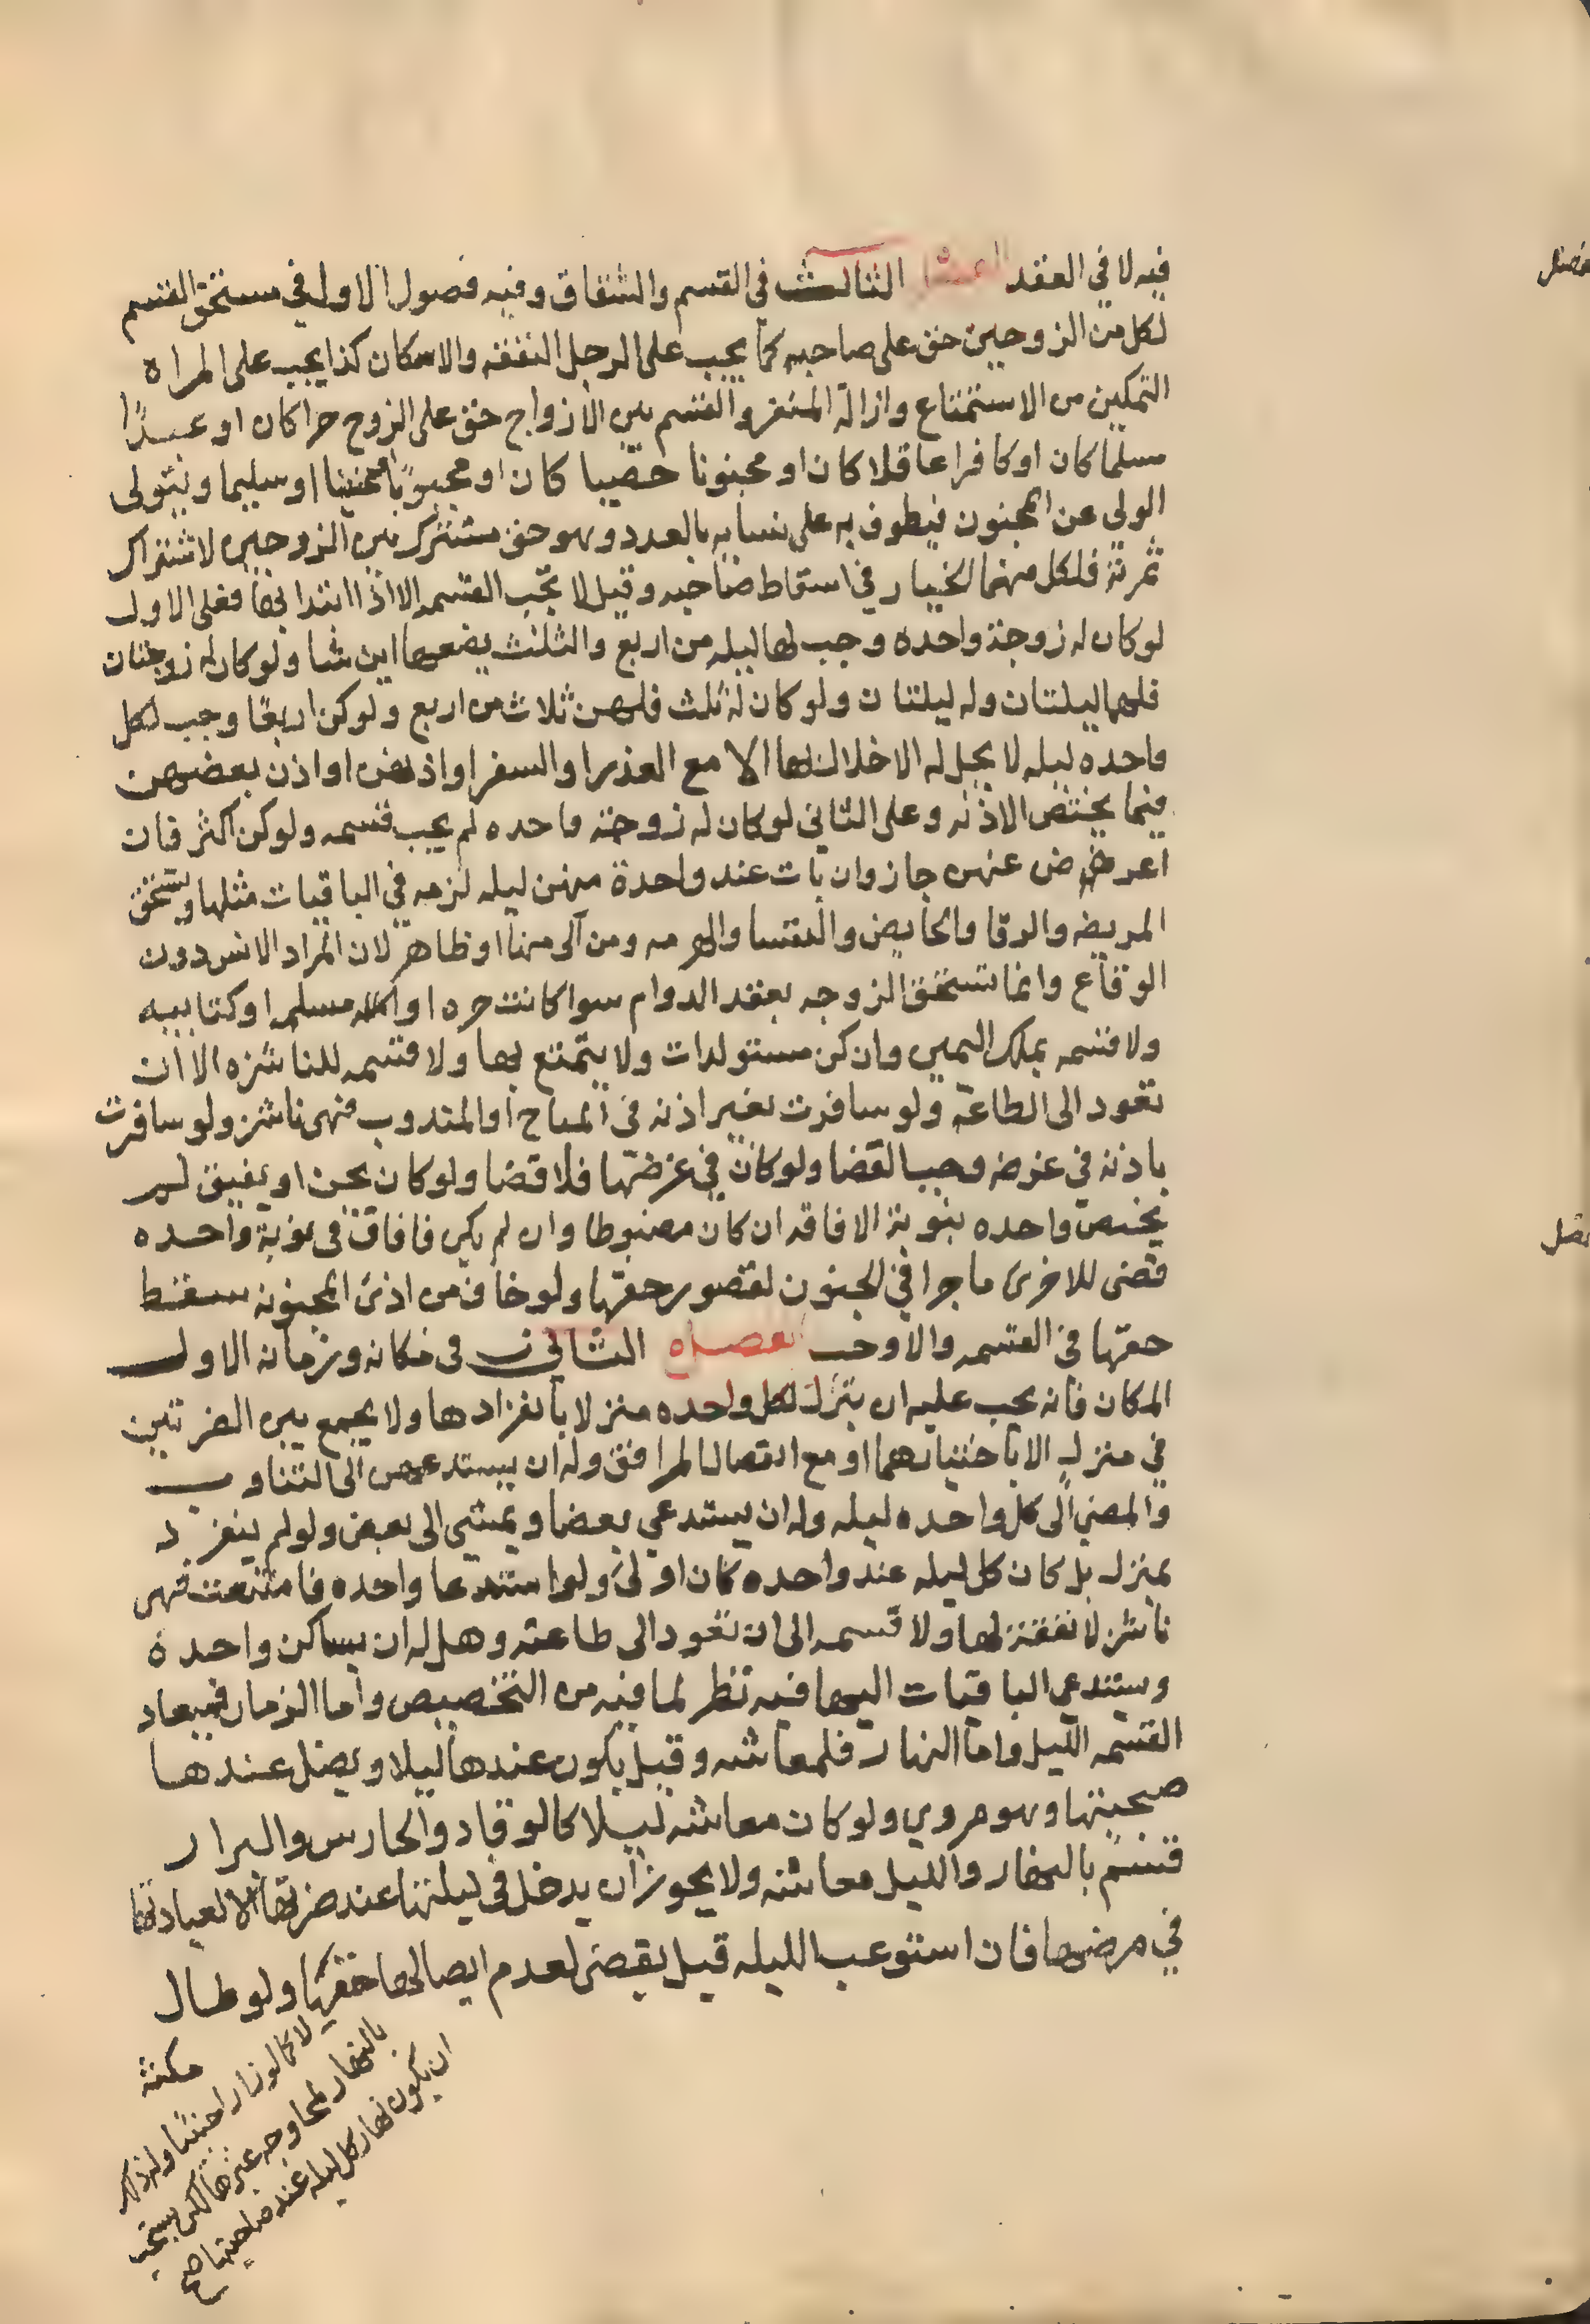 فيه لا في العقد الثالث في القسم والشقاق وفيه فصول الاول في مستحق القسم
لكل من الزوجين حق على صاحبه كما يجب على الرجل النفقه والاسكان كذا يجب على المراه
التمكين من الاستمتاع وازالة المنفر والقسم بين الازواج حق على الزوج حرا كان او عبدًا
مسلما كان او كافرا عاقلا كان او مجنونا خصيا كان او مجبوبًا او سليما ويتولى
الولي عن المجنون فيطوف به على نسايه بالعدد وهو حق مشترك بين الزوجين لاشتراك
ثمرته فلكل منهما الخيار في اسقاط صاحبه وقيل لا تجب القسمه الا اذا ابتدا بها فعلى الاول
لو كان له زوجة واحده وجب لها ليله من اربع والثلث يضعها اين شا ولو كان له زوجتان
فلهما ليلتان وله ليلتان ولو كان له ثلث فلهن ثلاث من اربع ولو كن اربعًا وجب لكل
واحده ليله لا يحل له الاخلال بها الا مع العذر او السفر او اذنهن او اذن بعضهن
فيما يختص الاذنه وعلى الثاني لو كان له زوجة واحده لم يجب قسمه ولو كن اكثر فان
اعرض عنهن جاز وان بات عند واحدة منهن ليله لزمه في الباقيات مثلها ويستحق
المريضه والرتقا والحايض والنفسا والمحرمه ومن آلى منها او ظاهر لان المراد الانس دون
الوقاع وانما تستحق الزوجه بعقد الدوام سوا كانت حره او امه مسلمه او كتابيه
ولا قسمه بملك اليمين وان كن مستولدات ولا يتمتع بها ولا قسمه للناشزه الا ان
تعود الى الطاعه ولو سافرت بغير اذنه في المباح او المندوب فهي ناشز ولو سافرت
باذنه في غرضه وجب القضا ولو كان في غرضها فلا قضا ولو كان يجن او يفيق لم
يختص واحده بنوبة الافاقه ان كان مضبوطا وان لم يكن فافاق في نوبة واحده
قضى للاخرى ما جرا في الجنون لقصور حقها ولو خاف من اذى المجنونه سقط
حقها في القسمه والا وجب الفصل الثاني في مكانه وزمانه الاول
المكان فانه يجب عليه ان ينزل لكل واحده منزلا بانفرادها ولا يجمع بين الضرتين
في منزل الا باختيارهما او مع انفصال المرافق وله ان يستدعيهن الى التناوب
والمضي الى كل واحده ليله وله ان يستدعي بعضا ويمشي الى بعض ولو لم ينفرد
بمنزل بل كان كل ليله عند واحده كان اولى ولو استدعا واحده فامتنعت فهي
ناشز لا نفقة لها ولا قسمه الى ان تعود الى طاعته وهل له ان يساكن واحده
وستدعي الباقيات اليها فيه نظر لما فيه من التخصيص واما الزمان فيعاد
القسمه الليل واما النهار فلمعاشه وقيل يكون عندها ليلا ويضل عندها
صحبتها وهو مروي ولو كان معاشه ليلا كالوقاد والحارس والبرار
قسم بالنهار والليل معاشه ولا يجوز ان يدخل في ليلتها عند ضرتها الا لعيادتها
في مرضها فان استوعب الليله قيل يقضى لعدم ايصالها حقها ولو طال
مكثه
لا كما لو زار اجنبيا وله ذلك
بالنهار لمحاوجه غيرها لكن يستحب
ان يكون نهار كل ليله عند صاحبتها صح